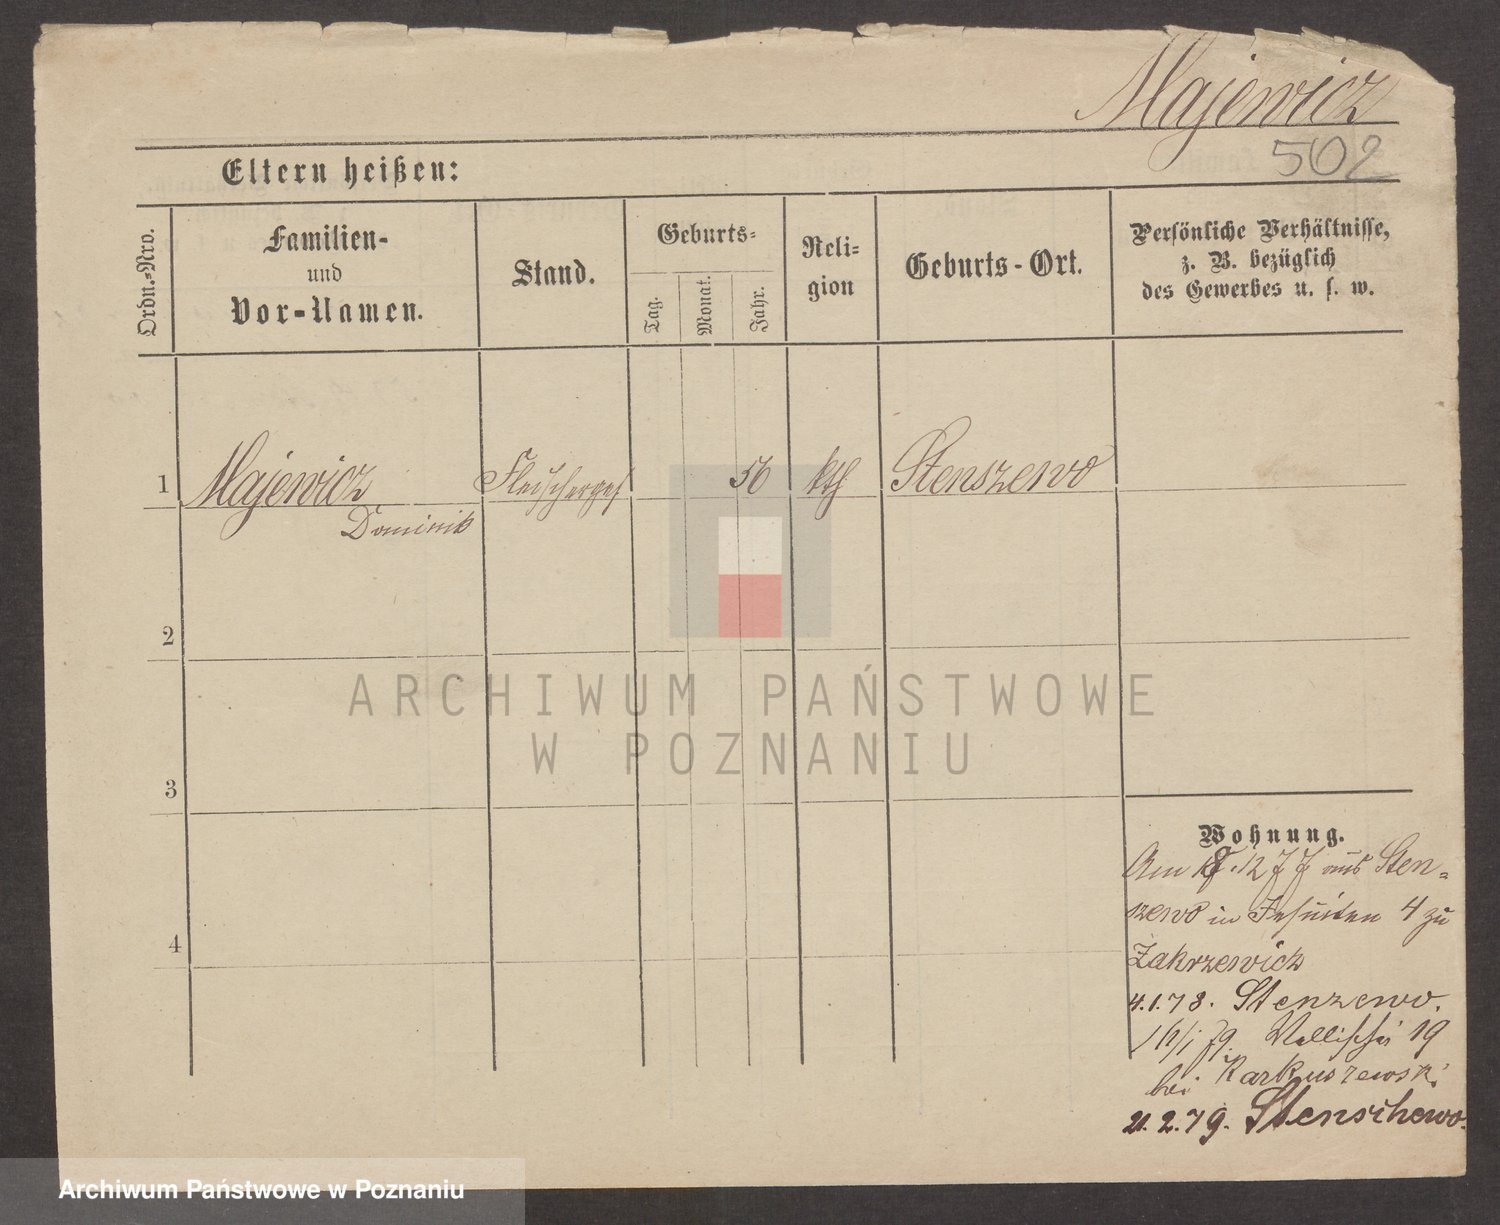 Majewicz
502
Eltern heißen:
Ordn.-Nro.
Familien-
und
Vor-Namen.
Stand.
Geburts-
Tag.
Monat.
Jahr.
Reli-
gion
Geburts-Ort.
Persönliche Verhältnisse,
z. B. bezüglich
des Gewerbes u. s. w.
1
Majewicz
Dominik
Fleischerges
56
kth
Stenszewo
2
3
4
Wohnung.
Am 12 77 aus Sten-
szewo in Jesuiten 4 zu
Zakrzewicz
4.1.78. Stenzewo.
79. Wallischei 19
bei Karkuszewski
21.2.79. Stenschewo.
ARCHIWUM PAŃSTWOWE
W POZNANIU
Archiwum Państwowe w Poznaniu